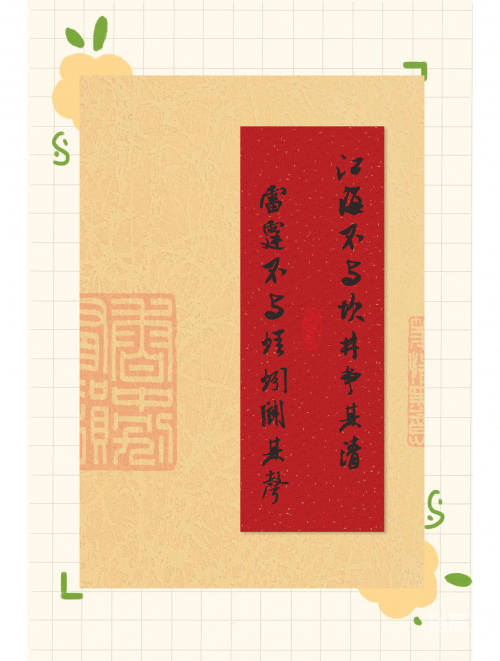 江海不与坎井争其清
雷霆不与蛙蚓斗其声